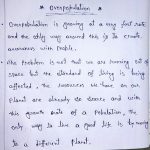 * Overpopulation *
• Overpopulation is growing at a very fast rate
and the only way around this is to create
awareness with people.
• The problem is not that we are running out of
space but the standard of living is being
affected. The resources we have on our
Planet are already so scarce and with
this growth rate of a population, the
only way to live a good life is by moving
to a different planet.